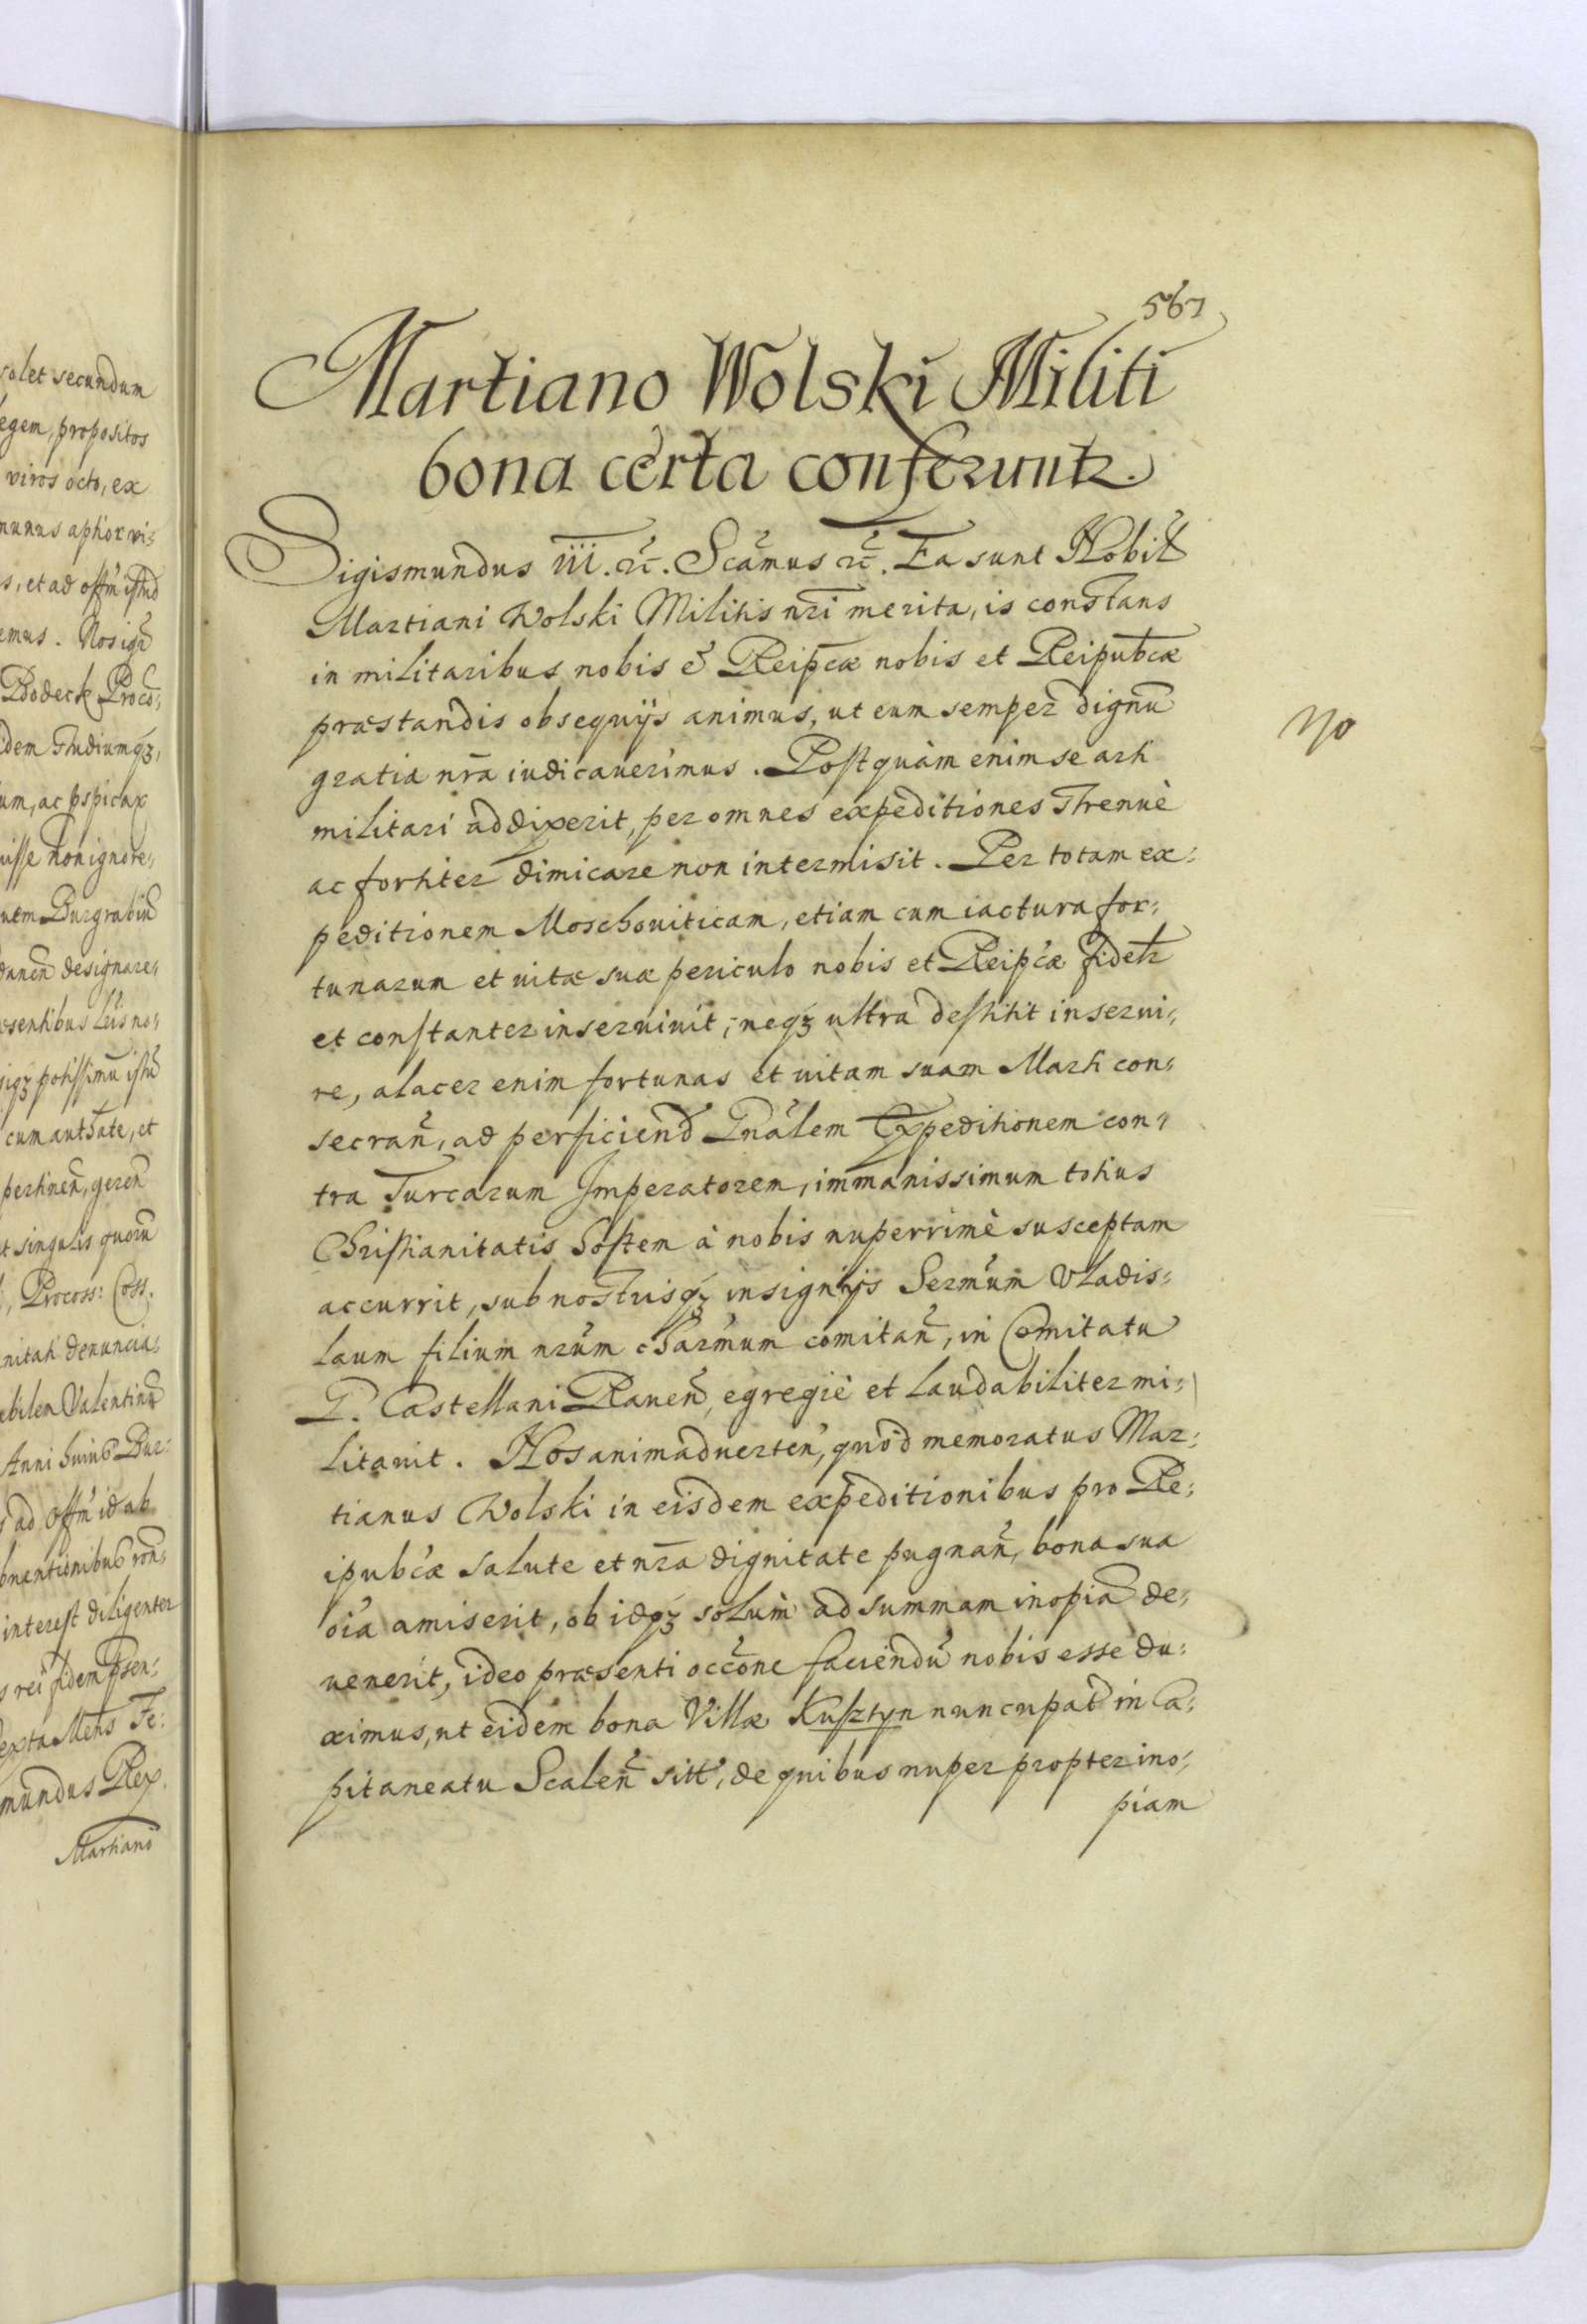 solet secundum
egem, propositos
viros octo, ex
emus. Nos igr̃
um, ac pspicax
uisse non ignore,
danen̄ designare,
cum autħate, et
pertinen̄, geren̄
t singulis quorũ
, Procoss: Coss.
nitati denuncia,
bilem Valentinũ
Anni huius Bur:
s ad offm̃ id ab
interest diligenter
s rei fidem p̃sen:
exta Mens Fe:
mundus Rex.
Martiano
567
Martiano Wolski Militi
bona certa conferuntr.
Sigismundus III. etc̃. Scãmus etc̃. Ea sunt Nobil̃
Martiani Wolski Militis nr̃i merita, is constans
in militaribus nobis & Reip̃cæ nobis et Reipub̃cæ
præstandis obsequijs animus, ut eum semper dignũ
gratia nr̃a iudicauerimus. Postquàm enim se arti
militari addixerit, per omnes expeditiones strenuè
ac fortiter dimicare non intermisit. Per totam ex:
peditionem Moschouiticam, etiam cum iactura for:
tunarum et uitæ suæ periculo nobis et Reip̃cæ fidelr
et constanter inseruiuit, neq₃ ultra destitit inserui:
re, alacer enim fortunas et uitam suam Marti con:
secrañ, ad perficiend̃ Gnãlem Expeditionem con:
tra Turcarum Imperatorem, immanissimum totius
Christianitatis hostem à nobis nuperrimè susceptam
accurrit, sub nostrisq₃ insignijs Sermũm Vladis:
laum filium nrũm charm̃um comitañ, in Comitatu
G. Castellani Rauen̄, egregiè et laudabiliter mi:
litauit. Nos animaduerteñ, quòd memoratus Mar:
tianus Wolski in eisdem expeditionibus pro Re:
ipub̃cæ salute et nr̃a dignitate pugnañ, bona sua
oĩa amiserit, ob idq₃ solùm ad summam inopiã de:
uenerit, ideo præsenti occõne faciendũ nobis esse du:
ximus, ut eidem bona Villæ Kusztyn nuncupat̃ in Ca:
pitaneatu Scaleñ sitt̃, de quibus nuper propter ino:
piam